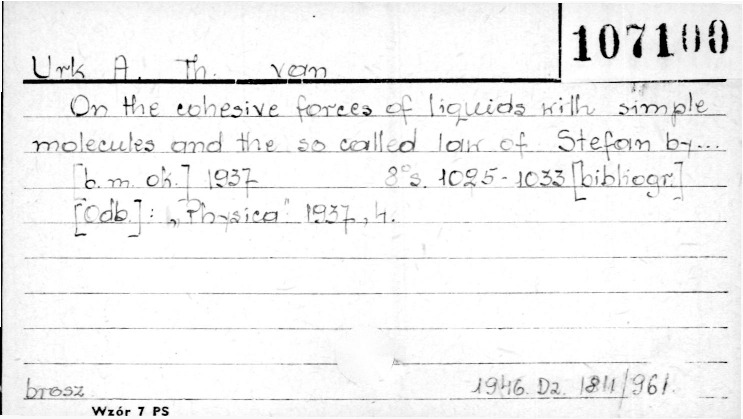 107100
Urk A. Th. van
On the cohesive forces of liquids with simple
molecules and the so called law of Stefan by...
[b. m. ok.] 1937 8° s. 1025-1033 [bibliogr.]
[Odb.]: „Physica" 1937, 4.
brosz. 1946. Dz. 1811/961.
Wzór 7 PS